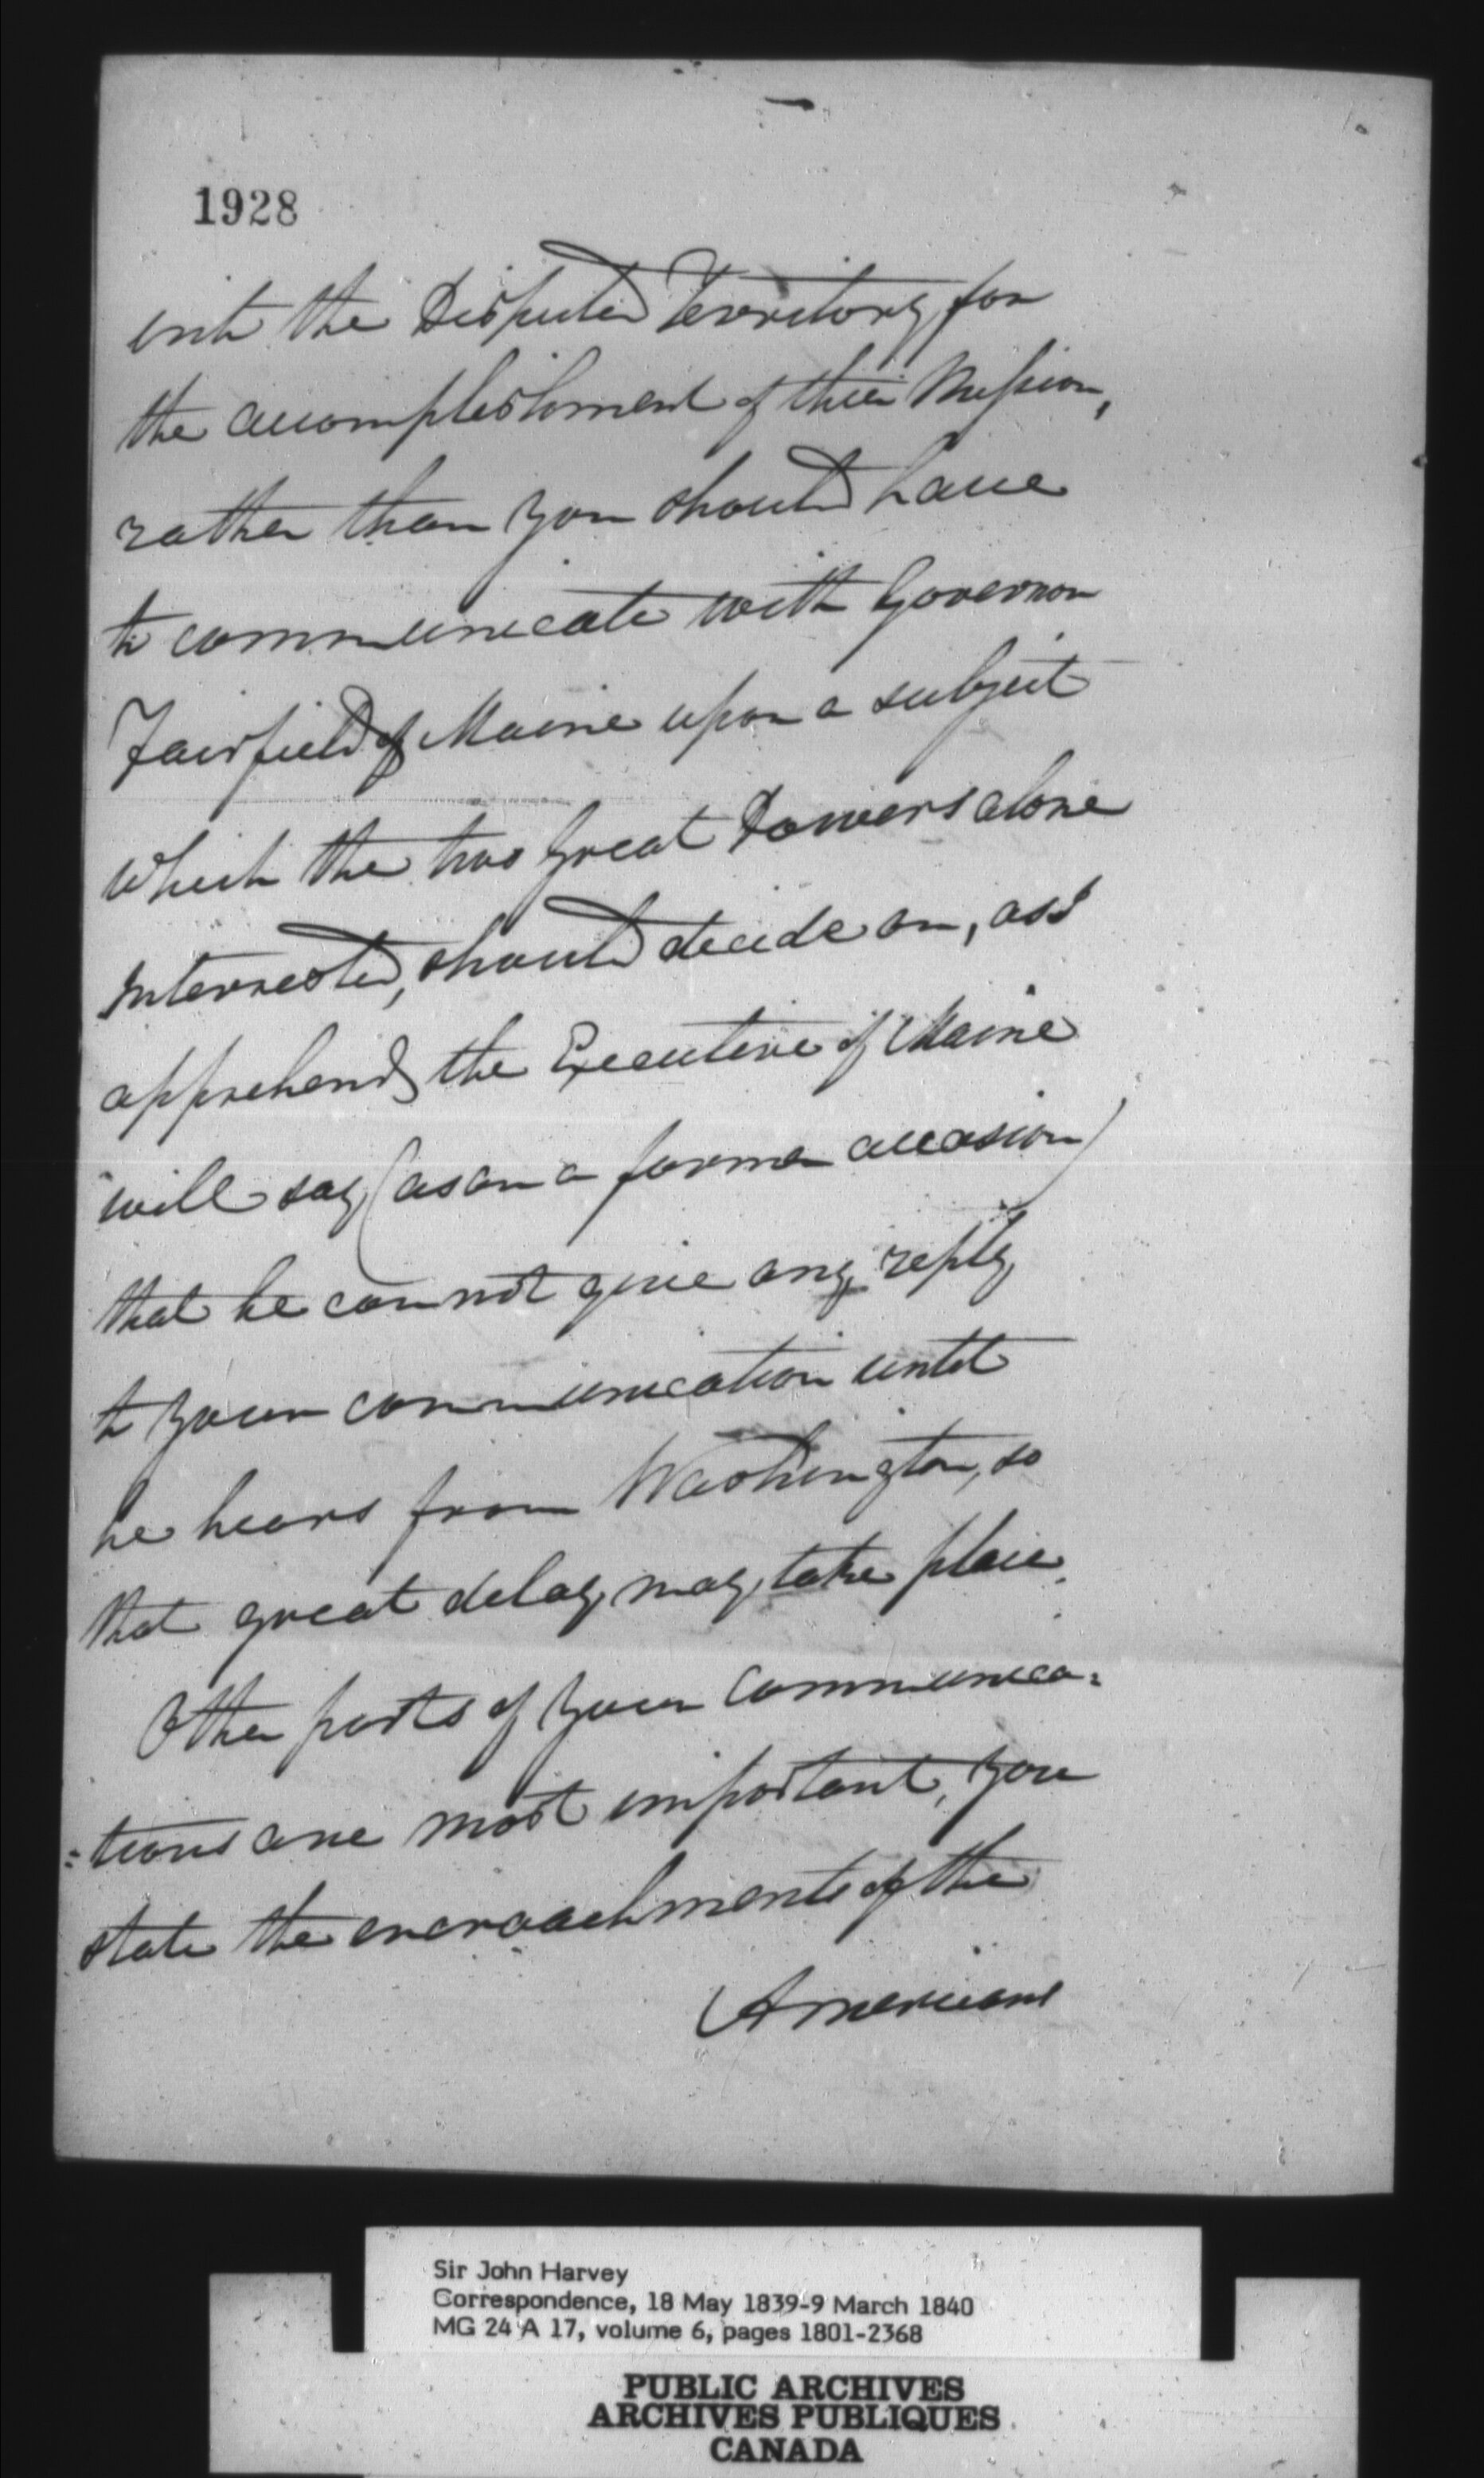 1928
into the Disputed Territory for
the accomplishment of their Mission,
rather than you should have
to communicate with Governor
Fairfield of Maine upon a subject
which the two Great Powers alone
Interrested, should decide on, as I
apprehend the Executive of Maine
will say (as on a former occasion)
that he cannot give any reply
to your communication until
he hears from Washington, so
that great delay may take place.
Other parts of your communica=
=tions are most important, you
state the encroachments of the
Americans
Sir John Harvey
Correspondence, 18 May 1839-9 March 1840
MG 24 A 17, volume 6, pages 1801-2368
PUBLIC ARCHIVES
ARCHIVES PUBLIQUES
CANADA